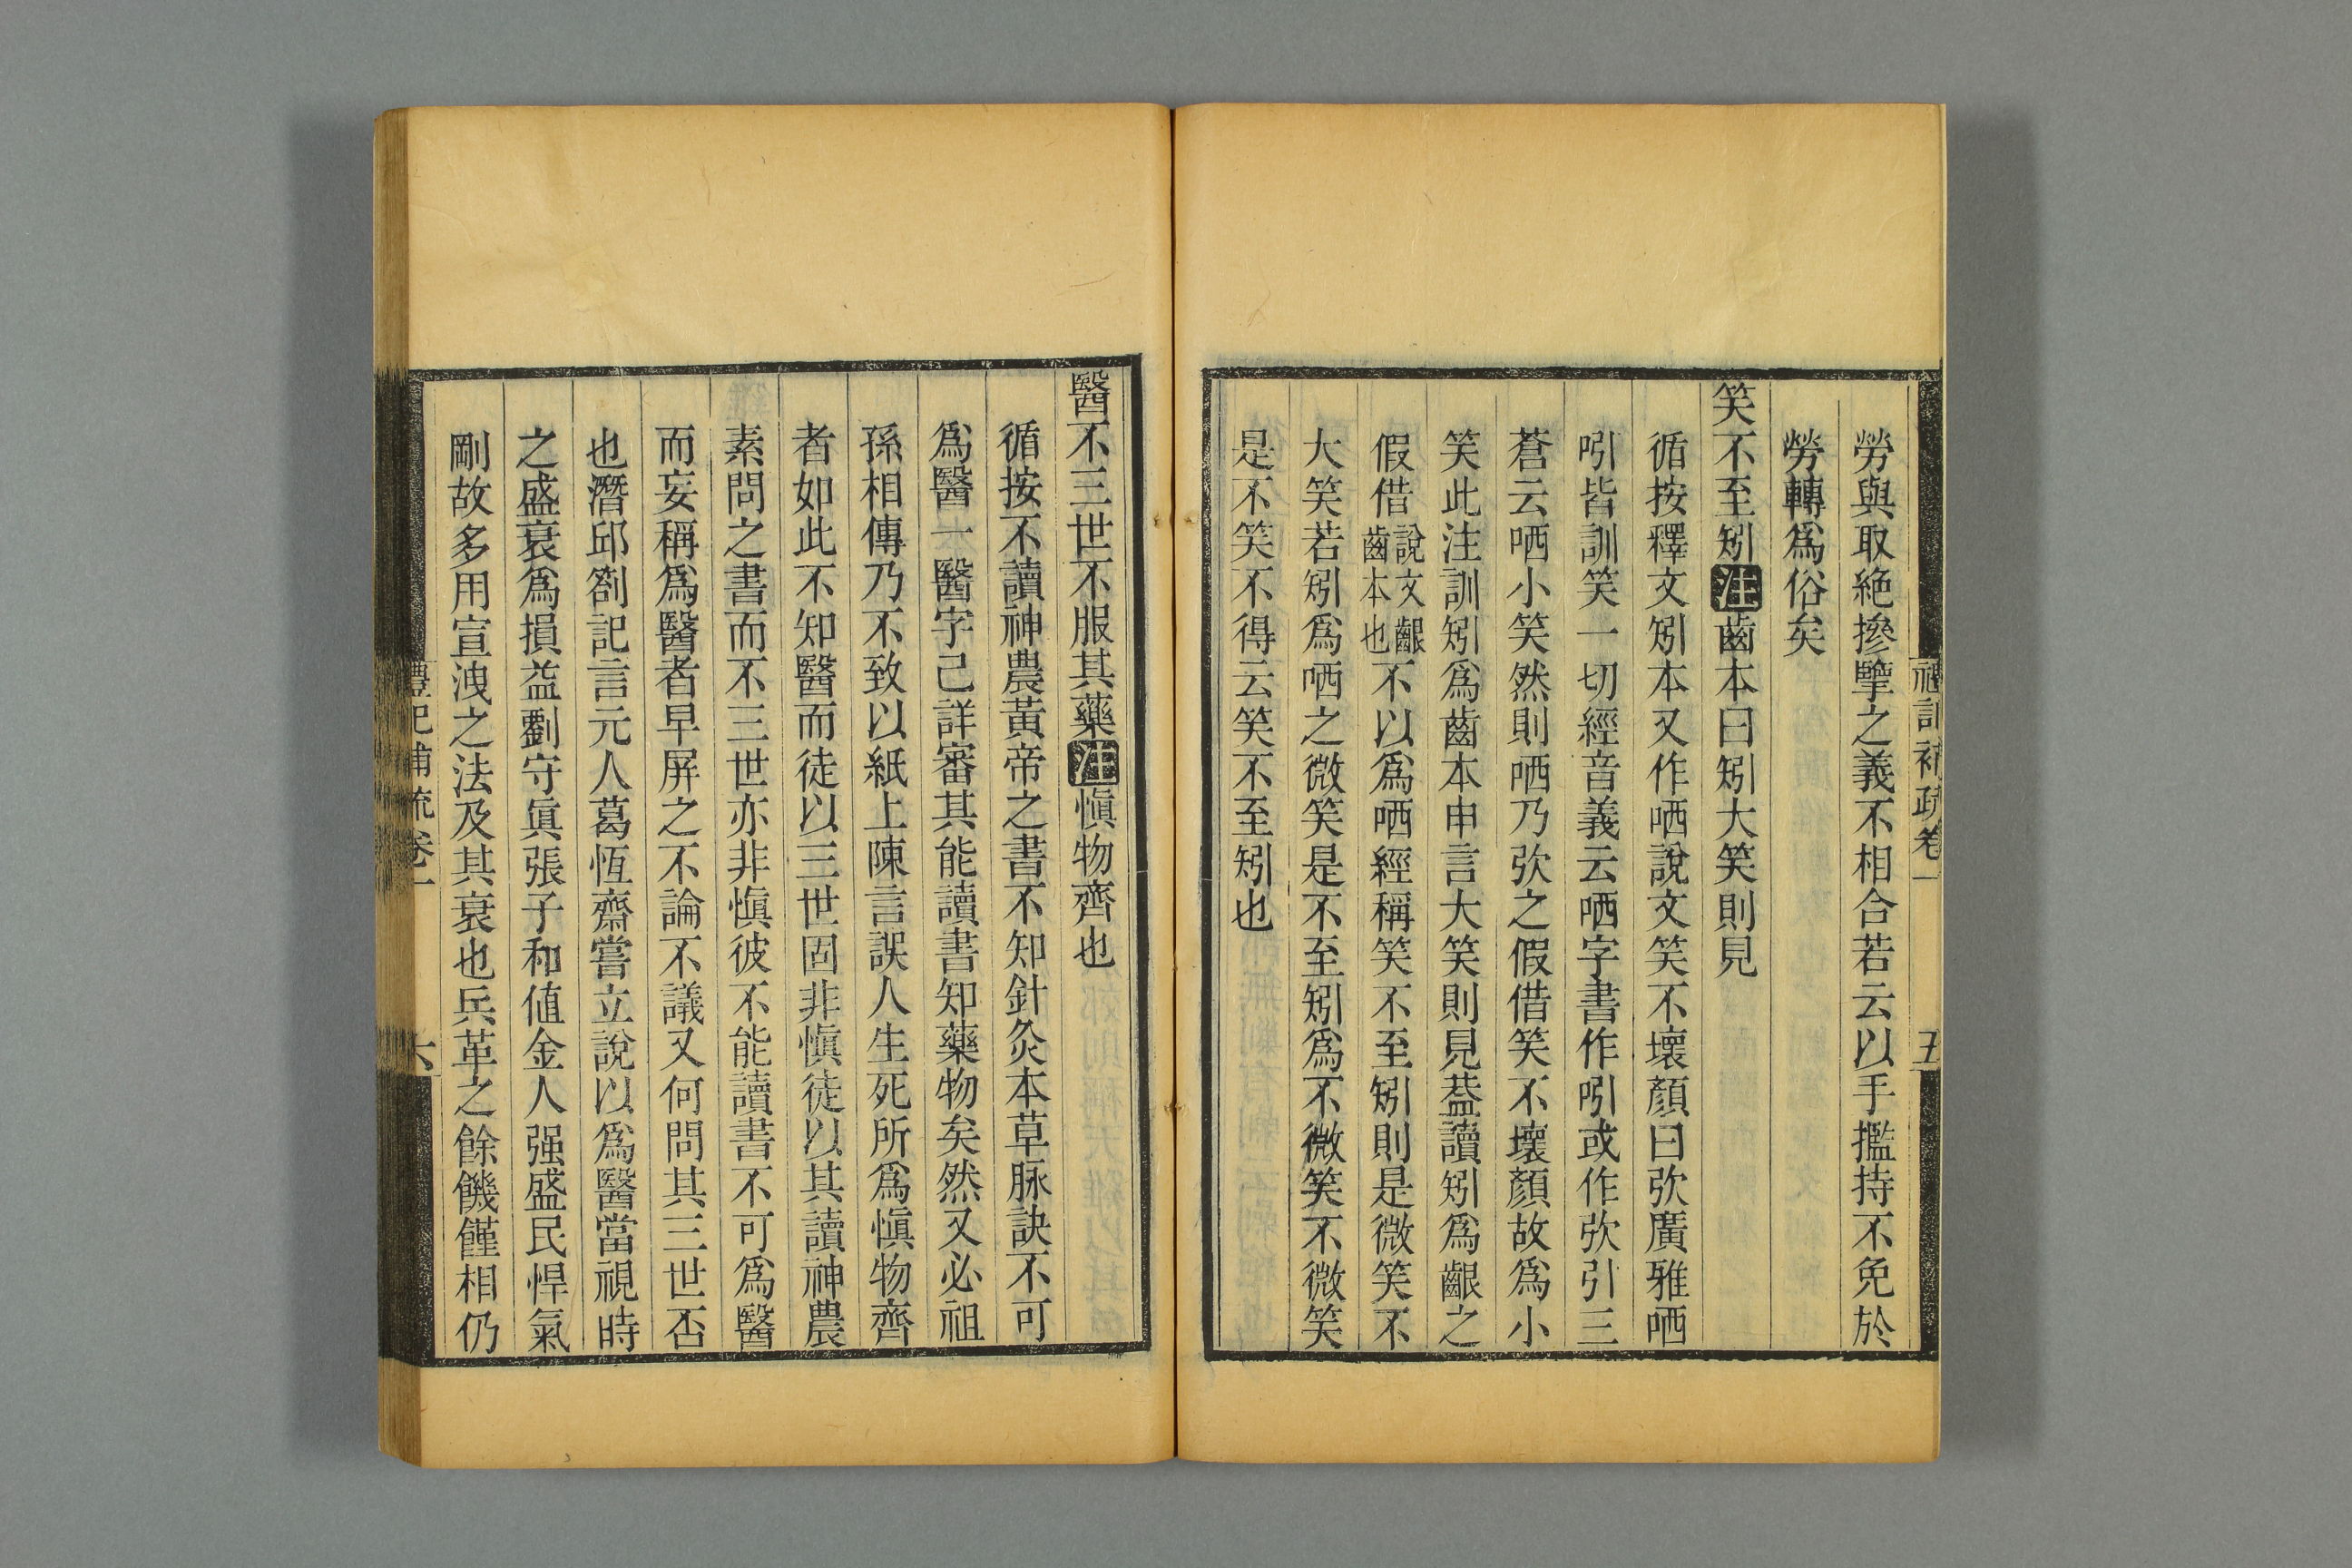 禮記補疏卷一
五
勞與取絶摻擥之義不相合若云以手擥持不免於
勞轉爲俗矣
笑不至矧注齒本曰矧大笑則見
循按釋文矧本又作哂說文笑不壞顏曰弞廣雅哂
吲皆訓笑一切經音義云哂字書作吲或作弞引三
蒼云哂小笑然則哂乃弞之假借笑不壞顏故爲小
笑此注訓矧爲齒本申言大笑則見葢讀矧爲齦之
假借說文齦齒本也不以爲哂經稱笑不至矧則是微笑不
大笑若矧爲哂之微笑是不至矧爲不微笑不微笑
是不笑不得云笑不至矧也
醫不三世不服其藥注愼物齊也
循按不讀神農黃帝之書不知針灸本草脉訣不可
爲醫一醫字己詳審其能讀書知藥物矣然又必祖
孫相傳乃不致以紙上陳言誤人生死所爲愼物齊
者如此不知醫而徒以三世固非愼徒以其讀神農
素問之書而不三世亦非愼彼不能讀書不可爲醫
而妄稱爲醫者早屏之不論不議又何問其三世否
也潛邱劄記言元人葛恆齋嘗立說以爲醫當視時
之盛衰爲損益劉守眞張子和値金人强盛民悍氣
剛故多用宣洩之法及其衰也兵革之餘饑饉相仍
禮記補疏卷一
六